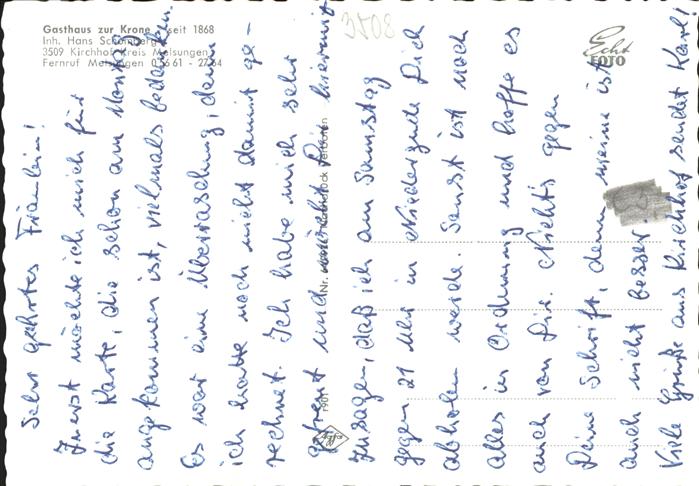 Gasthaus zur Krone seit 1868
Inh. Hans Schomberg
3509 Kirchhof Kreis Melsungen
Fernruf Melsungen 05661 - 2764
3508
Echt
FOTO
Nachdruck verboten
Agfa
Sehr geehrtes Fräulein!
Zuerst möchte ich mich für
die Karte, die schon am Montag
angekommen ist, vielmals bedanken.
Es war eine Überraschung, denn
ich hatte noch nicht damit ge-
rechnet. Ich habe mich sehr
gefreut und möchte Dir hiermit
zusagen, daß ich am Samstag
gegen 21 Uhr in Niedergude Dich
abholen werde. Sonst ist noch
alles in Ordnung und hoffe es
auch von Dir. Nichts gegen
Deine Schrift, denn meine ist
auch nicht besser.
Viele Grüße aus Kirchhof sendet Karl!